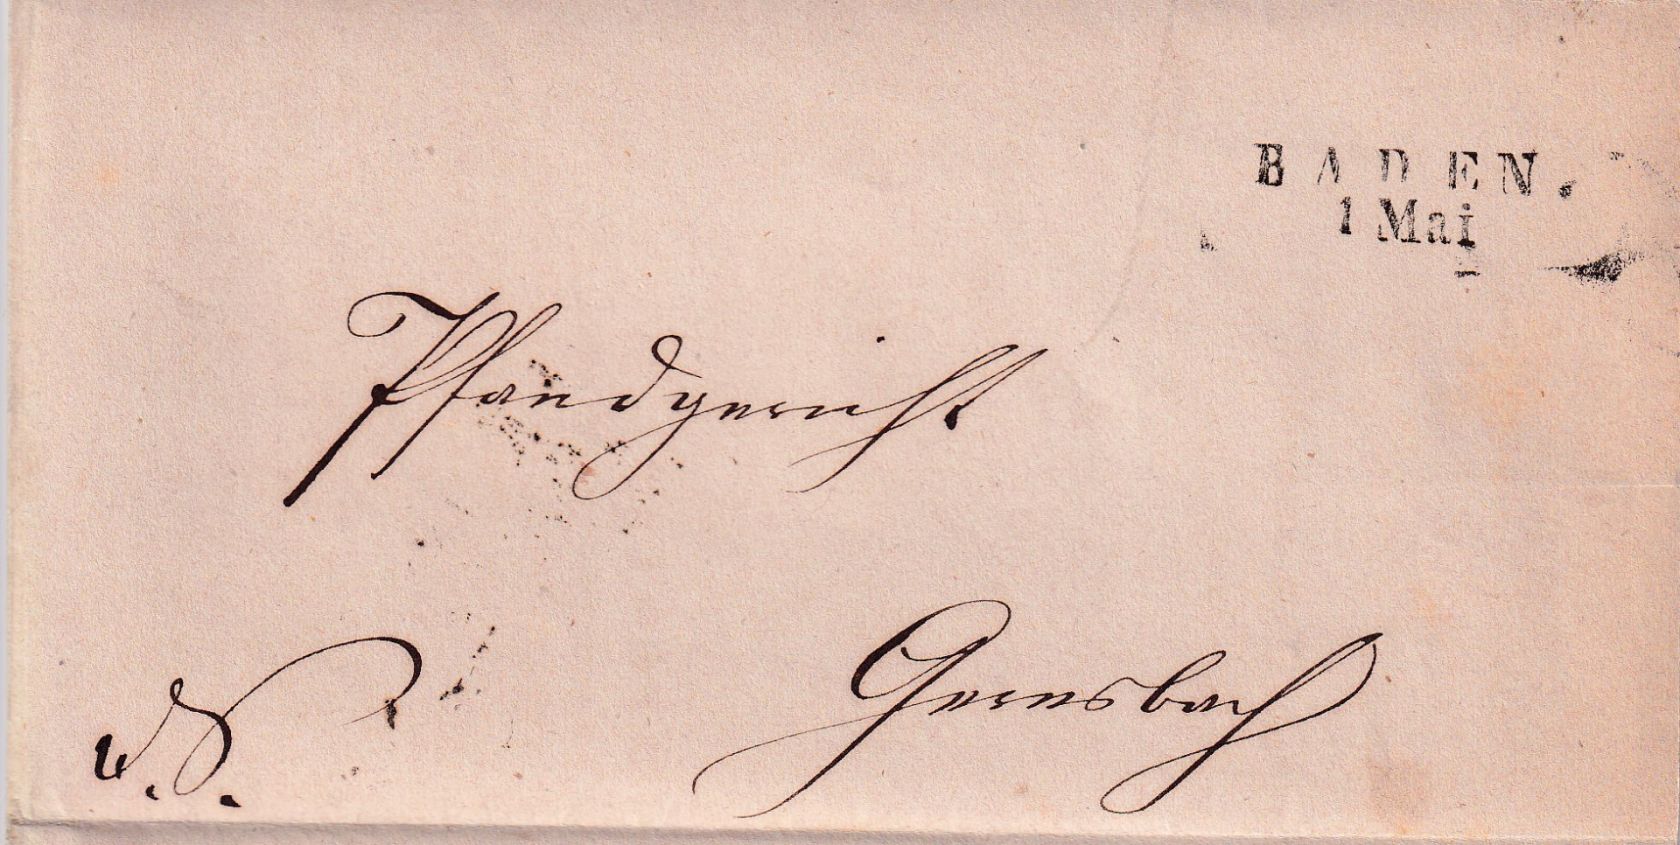 BADEN.
1 Mai
Pfandgericht
Gernsbach
d. S.